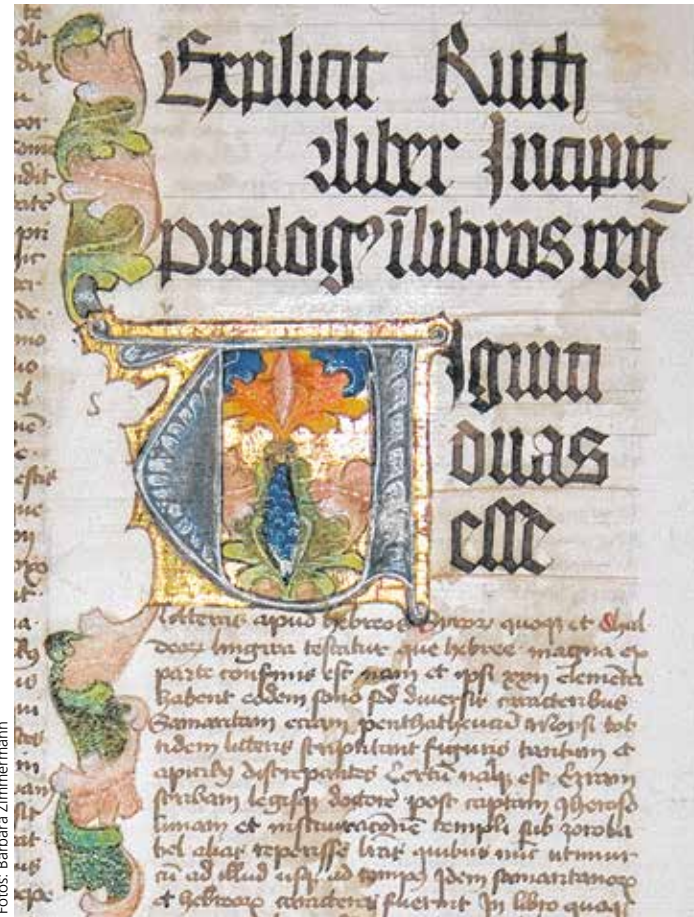 Explicit Ruth
liber Incipit
prolog9 ī libros reg̅
Uiginti
duas
esse
litteras apud hebreos Siror quoqꝫ et Chal
deoꝝ lingua testatur que hebree magna ex
parte confinis est nam et ipsi xxii elementa
habent eodem sono sed diuersis caracteribus
Samaritani eciam penthatheucum Moysi tot
tidem litteris scriptitant figuris tantum et
apicibꝫ discrepantes Certū naqꝫ est Esram
scribam legisqꝫ doctorē post captam Iheroso
limam et instauracionē templi sub zoroba
bel alias reperisse lrās quibus nūc utimur
cū ad illud usqꝫ ad tempꝰ idem samaritanoꝝ
et hebreoꝝ caracteres fuerint In libro quoqꝫ
Fotos: Barbara Zimmermann